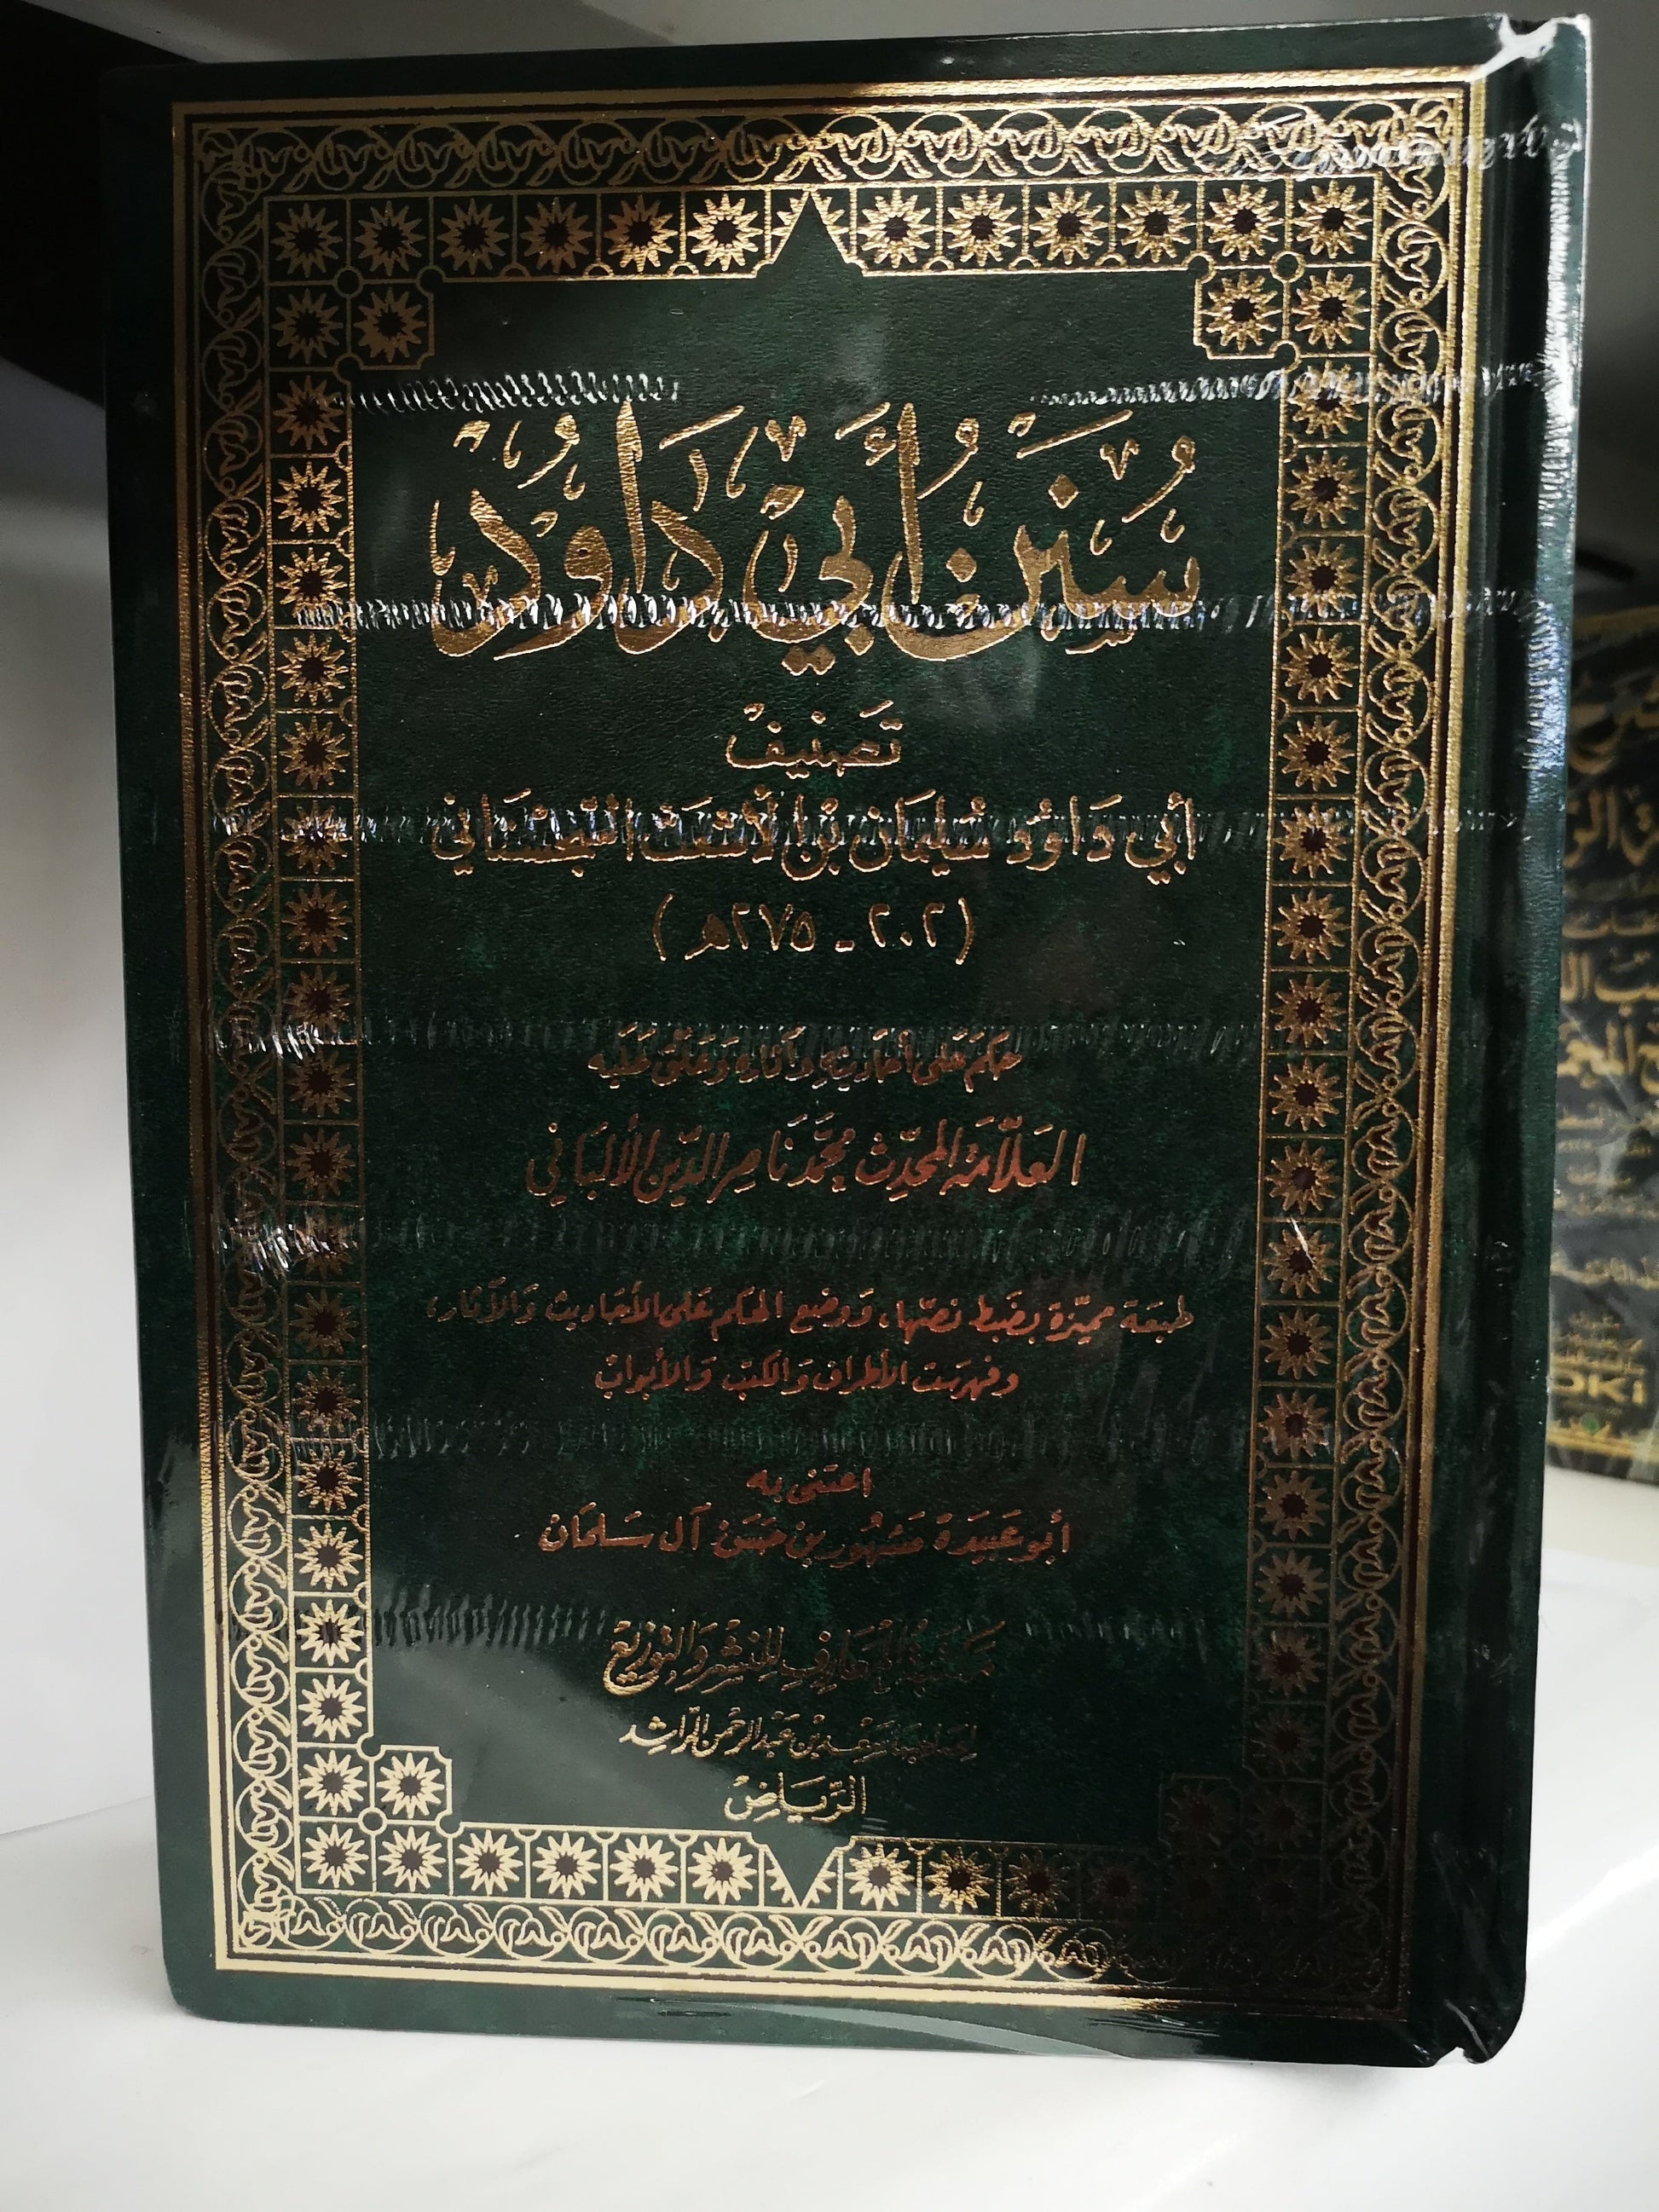 سُنَنُ أَبِي دَاوُدَ
تَصْنِيفُ
أَبِي دَاوُدَ سُلَيْمَانَ بْنِ الْأَشْعَثِ السِّجِسْتَانِي
(٢٠٢ - ٢٧٥هـ)
حَكَمَ عَلَى أَحَادِيثِهِ وَآثَارِهِ وَعَلَّقَ عَلَيْهِ
العَلَّامَة المحَدِّث مُحَمَّد نَاصِر الدِّين الأَلبَانِي
طبعَة مميّزة بضَبط نصّها، وَوضع الحكم عَلى الأحَاديث وَالآثار،
وفهرَست الأطراف وَالكتب وَالأبواب
اعتنى به
أبو عُبَيدَة مَشهُور بن حَسَن آل سَلمَان
مَكتَبة المَعَارف للنَّشْر وَالتَّوزيع
لِصَاحِبهَا سَعد بن عَبد الرَّحمن الرَّاشِد
الرّيَاض